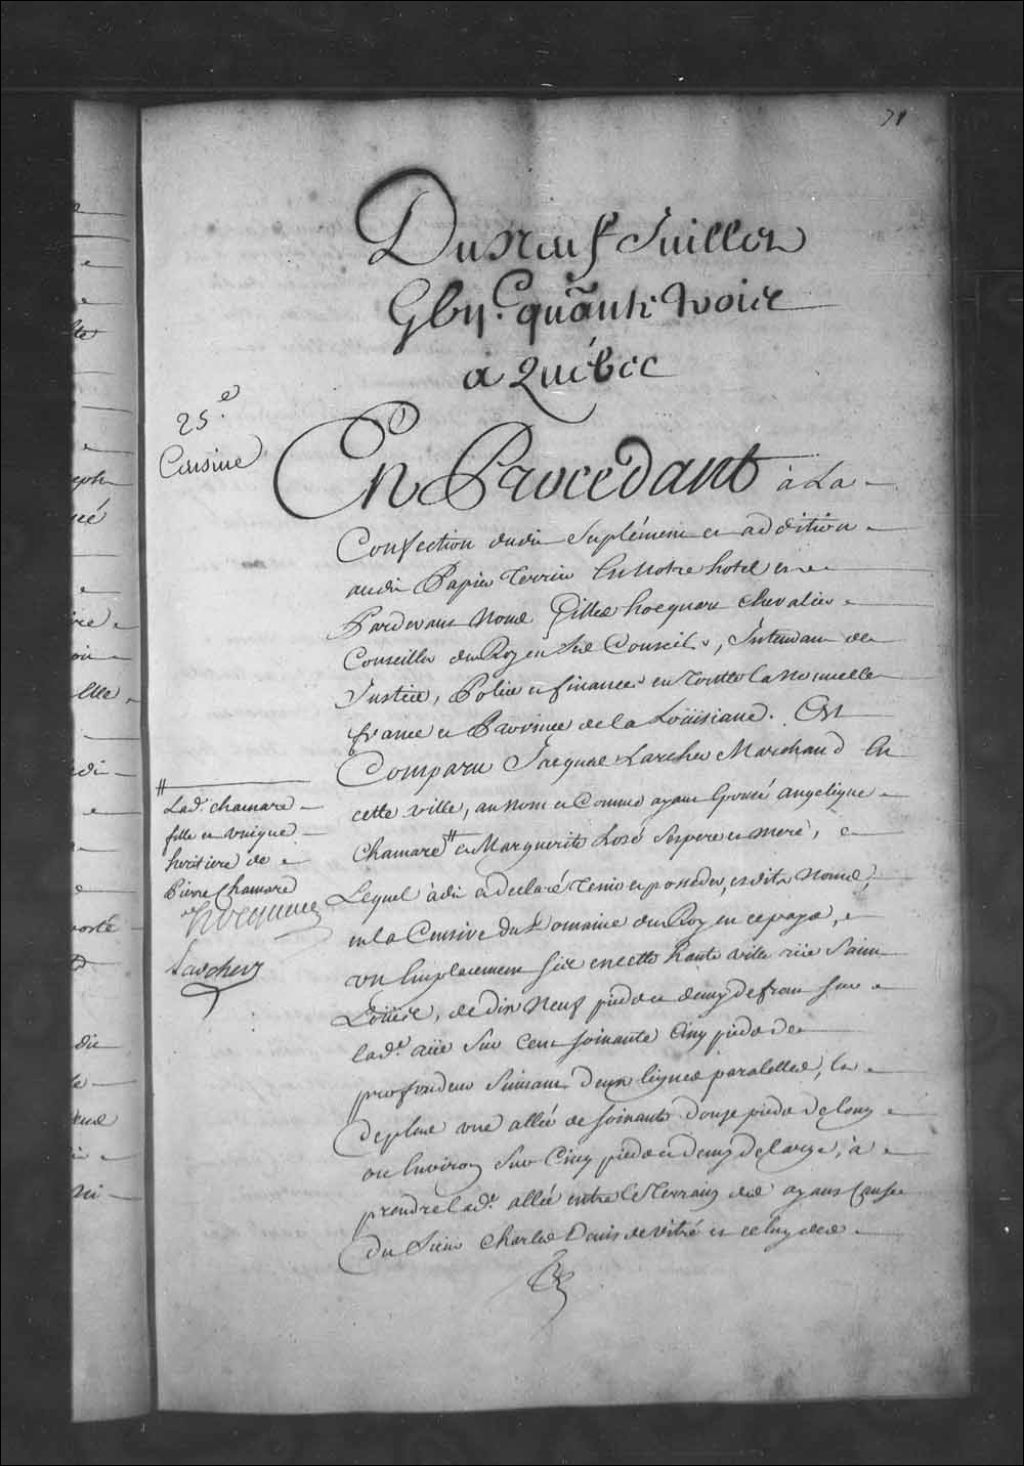 71
Du Neuf Juillet
Gbije. quãnte Trois
a Québec
25.e
Censive
En Procédant à La
Confection dudit Suplément et addition
audit Papier Terrier En Notre hotel et
Pardevant Nous Gilles hocquart Chevalier
Conseiller du Roy en Ses Conseils, Intendant de
Justice, Police et finances en Toutte la Nouvelle
france et Province de la Loüisiane. Est
Comparu Jacques Larcher Marchand En
cette ville, au Nom et Comme ayant Epousé angelique
Chamare # et Marguerite Losé Ses pere et mere,
Lequel à dit et declaré Tenir et posseder, esdits Noms,
en la Censive du Domaine du Roy en ce pays,
un Emplacement sis en cette haute ville rüe Saint
Loüis, de dix Neuf pieds et demy de front sur
lad.e rüe Sur Cent soixante Cinq pieds de
profondeur Suivant Deux lignes paralelles, Et
De plus une allée de soixante Douze pieds de long
ou Environ Sur Cinq pieds et demy de large, à
prendre lad.e allée entre le Terrain des ayans Cause
du Sieur Charles Denis de Vitré et celuy des
# Lad.e chamare
fille et unique
heritiere de
Pierre Chamare
hocquart
Larcher